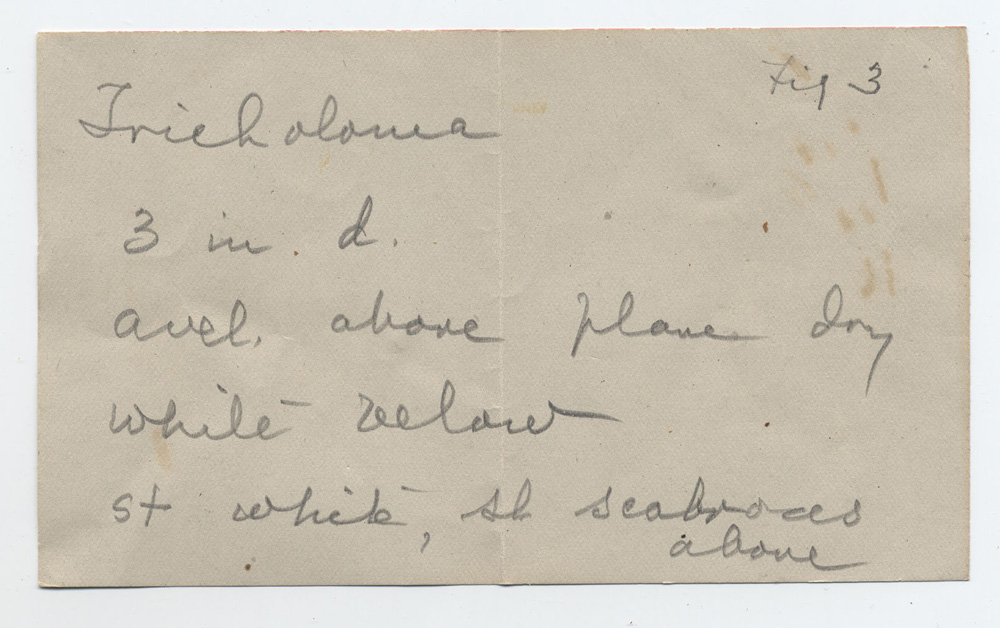 Fig 3
Tricholoma
3 in. d.
avel. above plane dry
white below
st white, sl scabrous
above